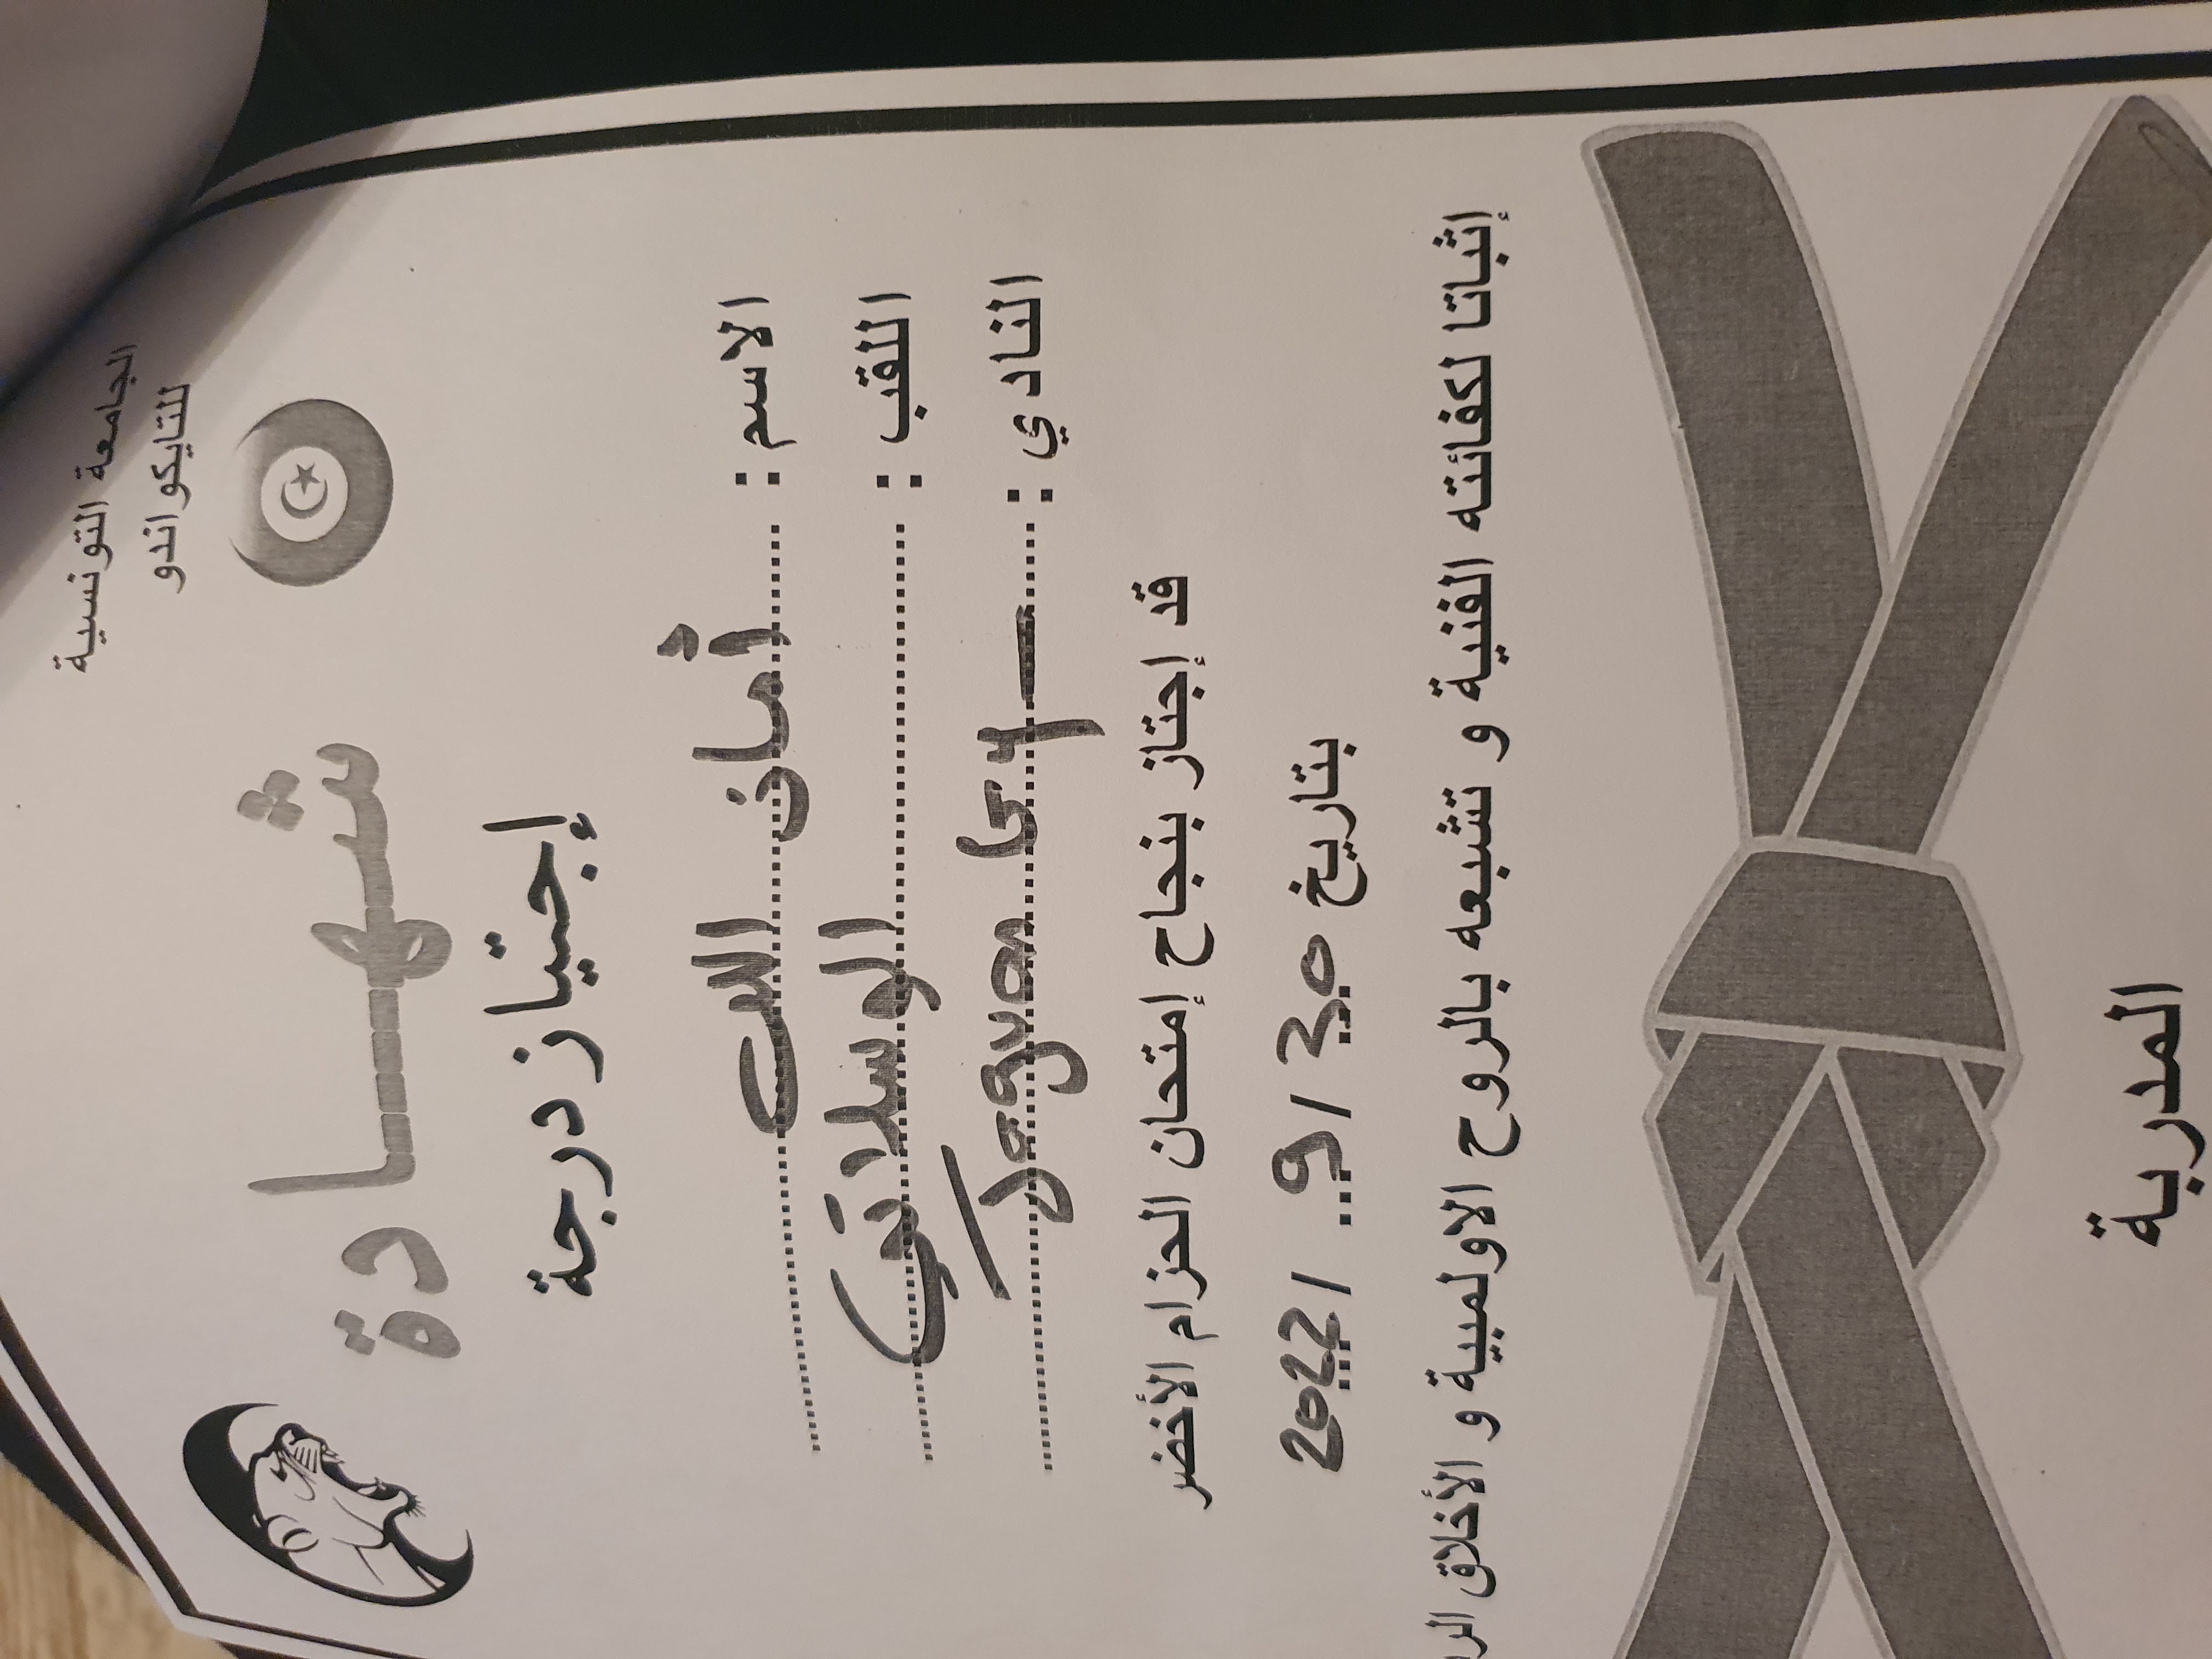 الجامعة التونسية
للتايكواندو
شهادة
إجتياز درجة
الاسم : أمان الله
اللقب : الوسلاتي
النادي :
قد إجتاز بنجاح إمتحان الحزام الأخضر
بتاريخ 30 / 9 / 2022
إثباتا لكفائته الفنية و تشبعه بالروح الاولمبية و الأخلاق
المدربة